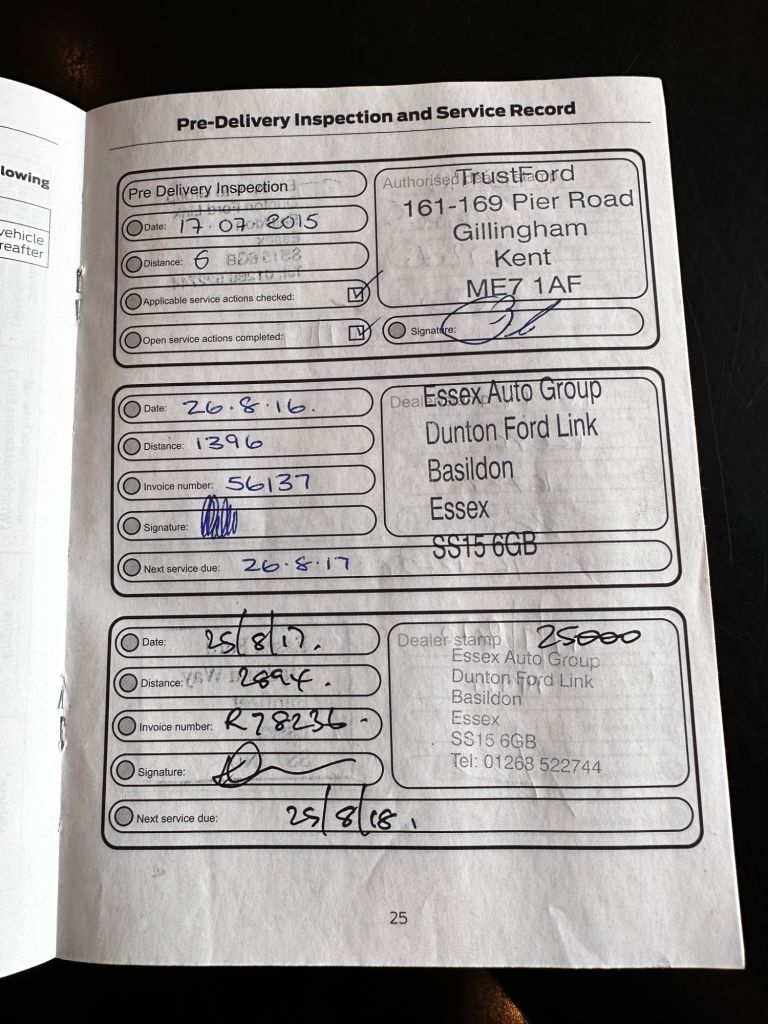 lowing
vehicle
reafter
Pre-Delivery Inspection and Service Record
Pre Delivery Inspection
Date: 17.07.2015
Distance: 6
Applicable service actions checked:
Open service actions completed:
Authorised
TrustFord
161-169 Pier Road
Gillingham
Kent
ME7 1AF
Signature:
Date: 26.8.16.
Distance: 1396
Invoice number: 56137
Signature:
Next service due: 26.8.17
Essex Auto Group
Dunton Ford Link
Basildon
Essex
SS15 6GB
Date: 25/8/17.
Distance: 2894.
Invoice number: R78236-
Signature:
Next service due: 25/8/18.
Dealer stamp 25000
Essex Auto Group
Dunton Ford Link
Basildon
Essex
SS15 6GB
Tel: 01268 522744
25